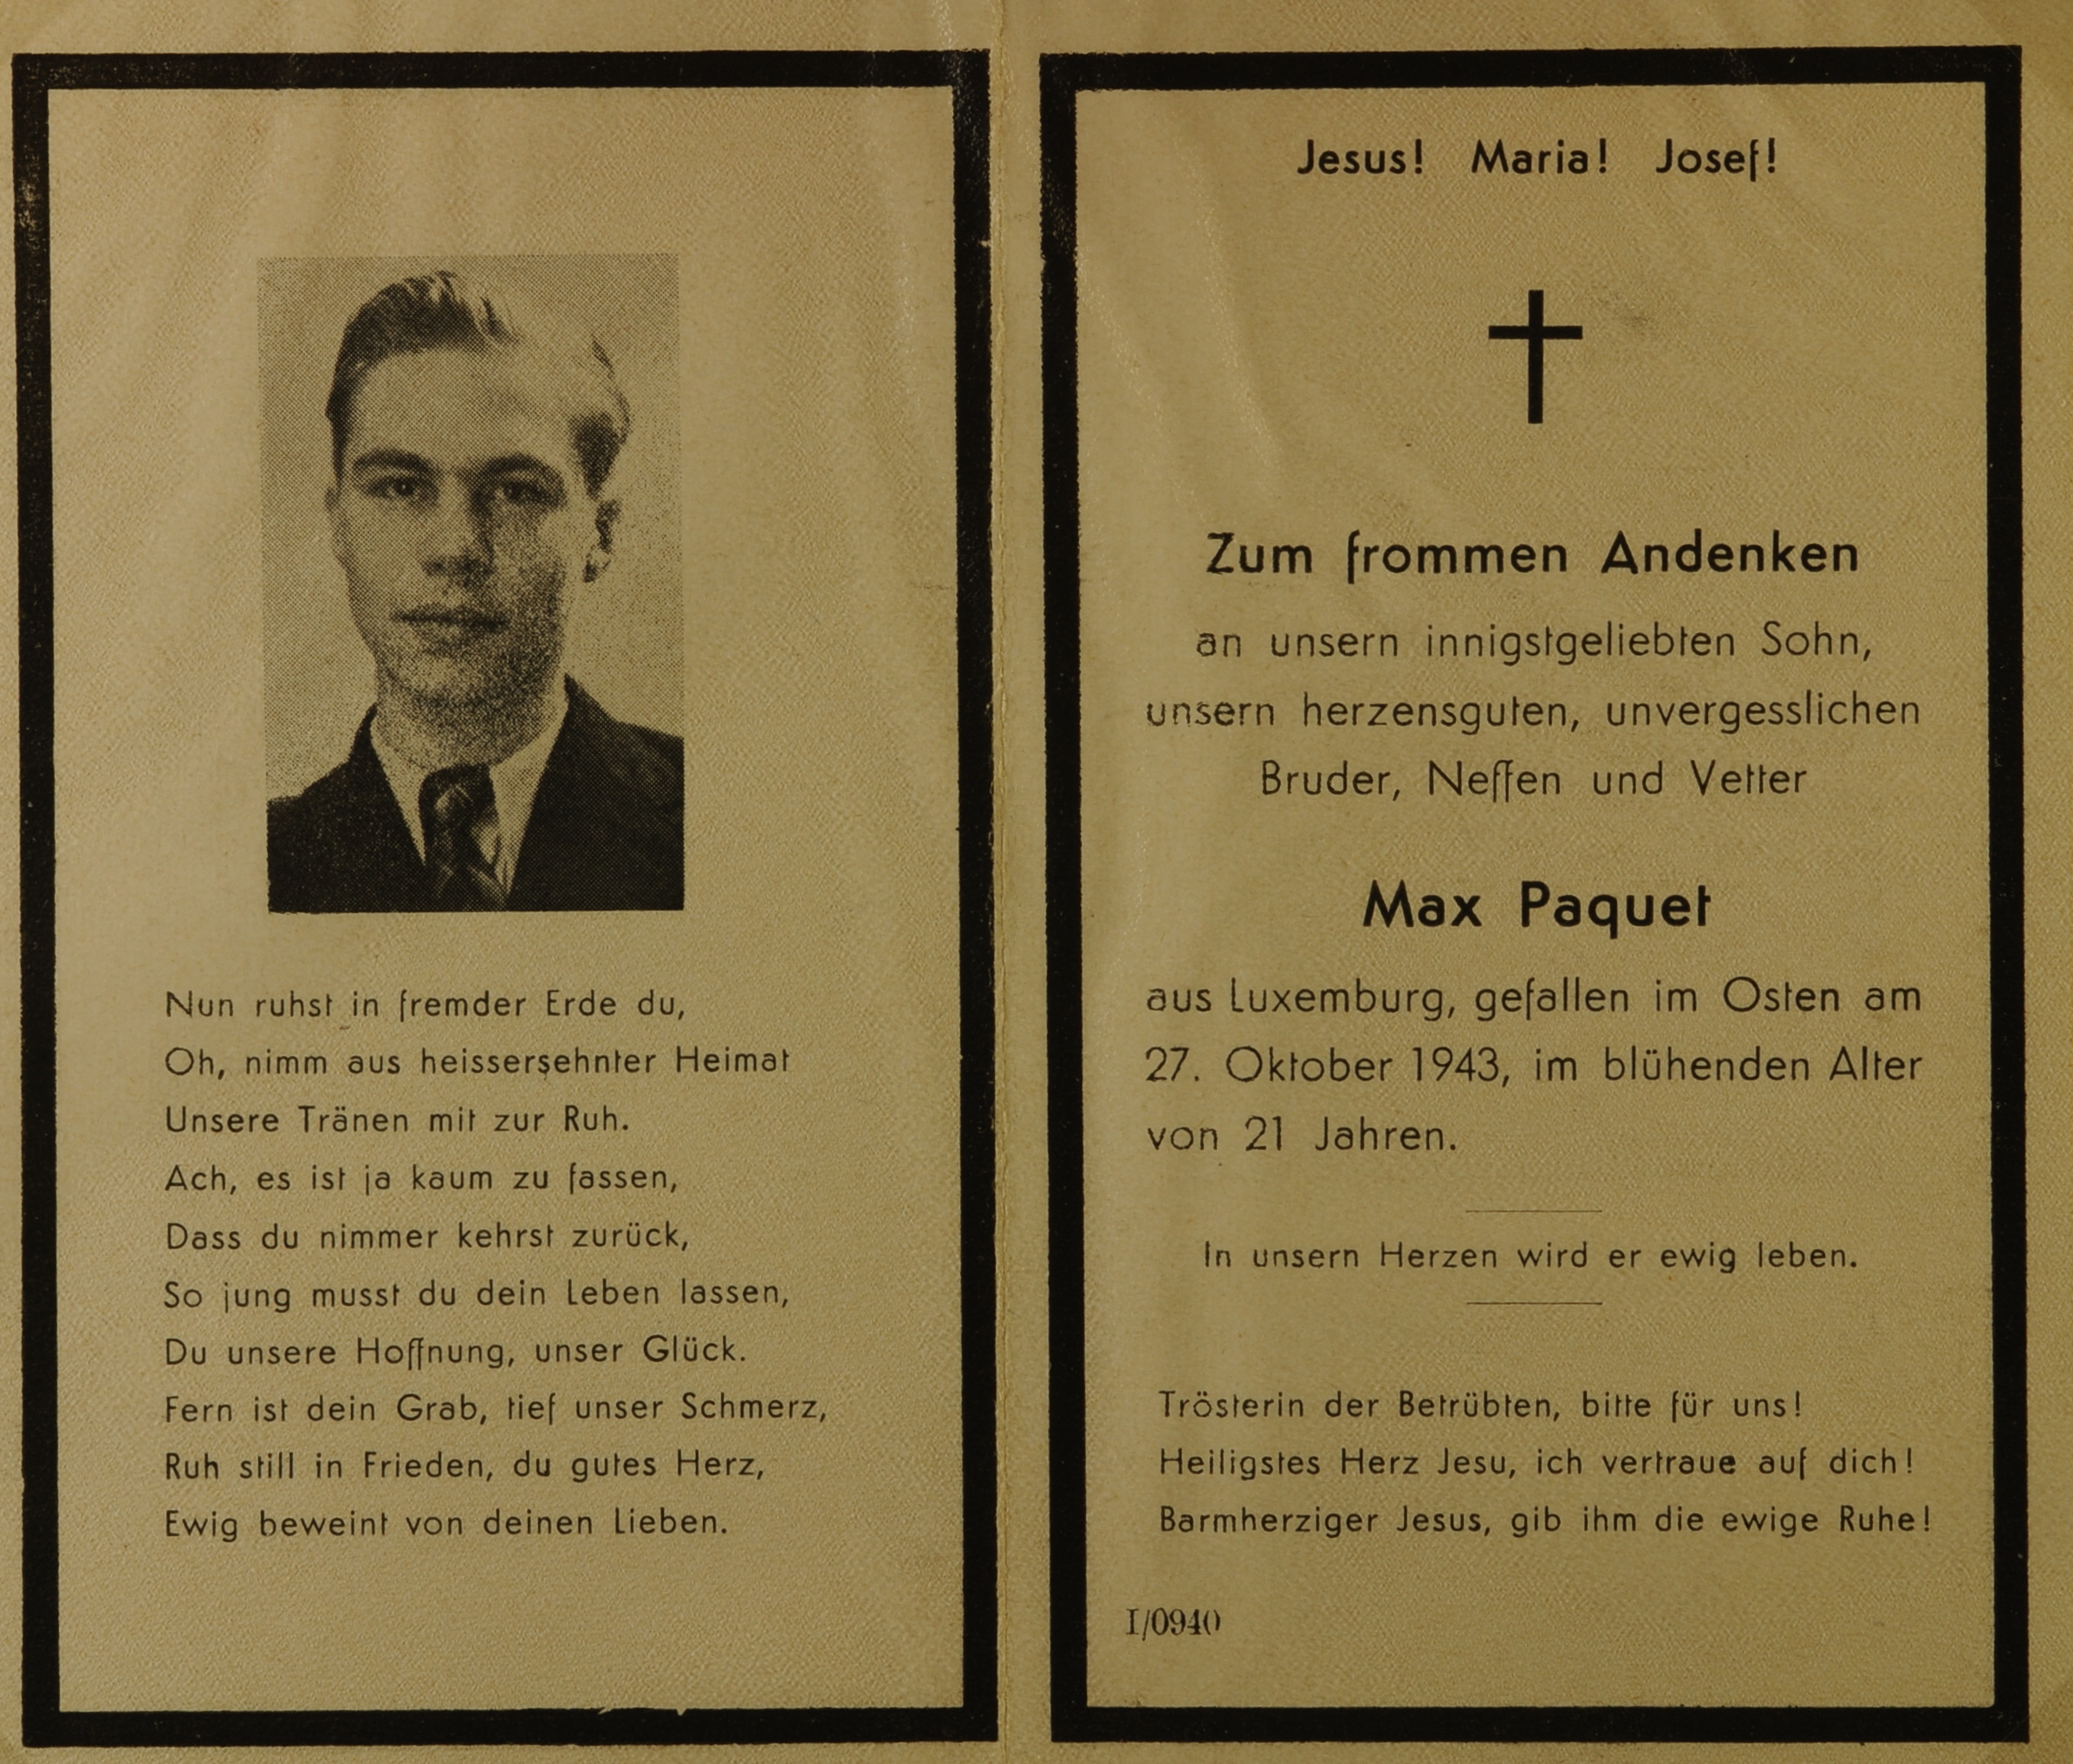 Nun ruhst in fremder Erde du,
Oh, nimm aus heissersehnter Heimat
Unsere Tränen mit zur Ruh.
Ach, es ist ja kaum zu fassen,
Dass du nimmer kehrst zurück,
So jung musst du dein Leben lassen,
Du unsere Hoffnung, unser Glück.
Fern ist dein Grab, tief unser Schmerz,
Ruh still in Frieden, du gutes Herz,
Ewig beweint von deinen Lieben.
Jesus! Maria! Josef!
Zum frommen Andenken
an unsern innigstgeliebten Sohn,
unsern herzensguten, unvergesslichen
Bruder, Neffen und Vetter
Max Paquet
aus Luxemburg, gefallen im Osten am
27. Oktober 1943, im blühenden Alter
von 21 Jahren.
In unsern Herzen wird er ewig leben.
Trösterin der Betrübten, bitte für uns!
Heiligstes Herz Jesu, ich vertraue auf dich!
Barmherziger Jesus, gib ihm die ewige Ruhe!
I/0940